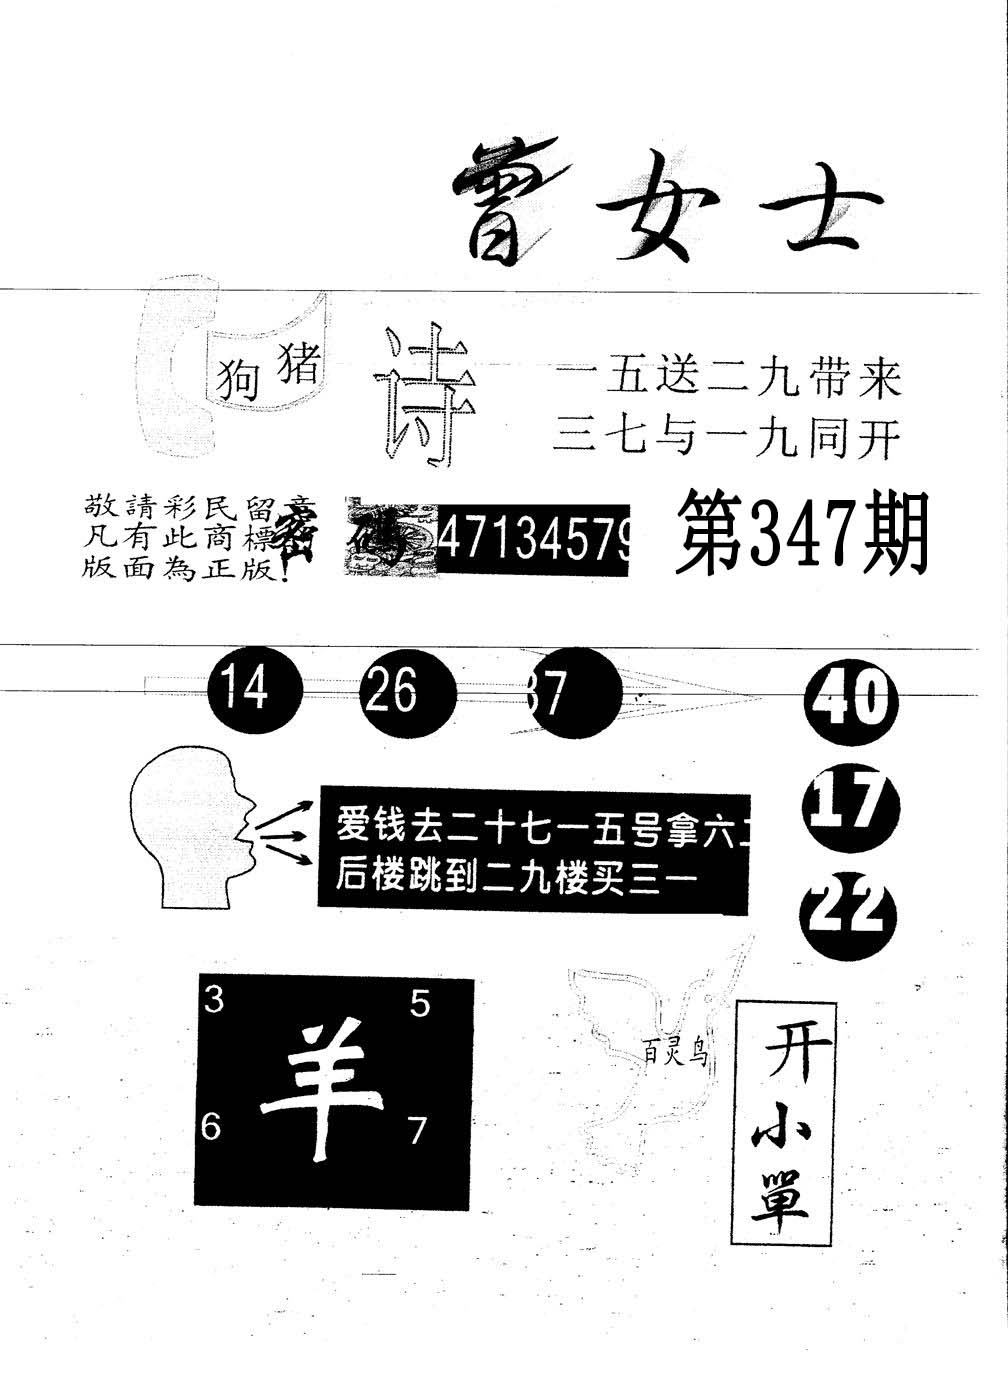 曾女士
狗猪
诗
一五送二九带来
三七与一九同开
敬請彩民留意
凡有此商標
版面為正版!
密码
47134579
第347期
14
26
37
40
17
22
爱钱去二十七一五号拿六二
后楼跳到二九楼买三一
3
5
羊
6
7
百灵鸟
开小單